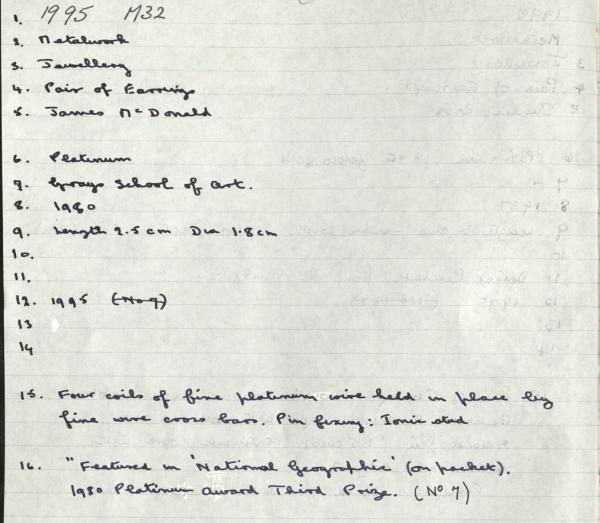 1. 1995 M32
2. Metalwork
3. Jewellery
4. Pair of Earrings
5. James McDonald
6. Platinum
7. Grays School of Art.
8. 1980
9. Length 2.5 cm Dia 1.8cm
10.
11.
12. 1995 (No 7)
13
14
15. Four coils of fine platinum wire held in place by
fine wire cross bars. Pin fixing: Ionic
16. "Featured in 'National Geographic' (on packet).
1980 Platinum Award Third Prize. (No 7)